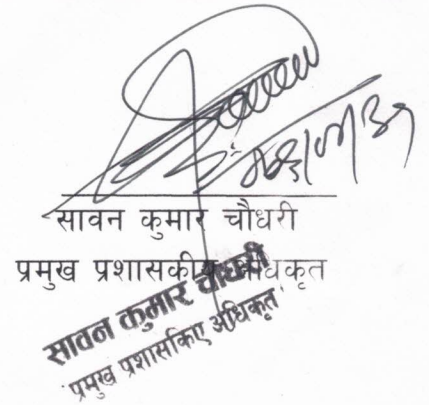 सावन कुमार चौधरी
प्रमुख प्रशासकीय अधिकृत
सावन कुमार चौधरी
प्रमुख प्रशासकिए अधिकृत